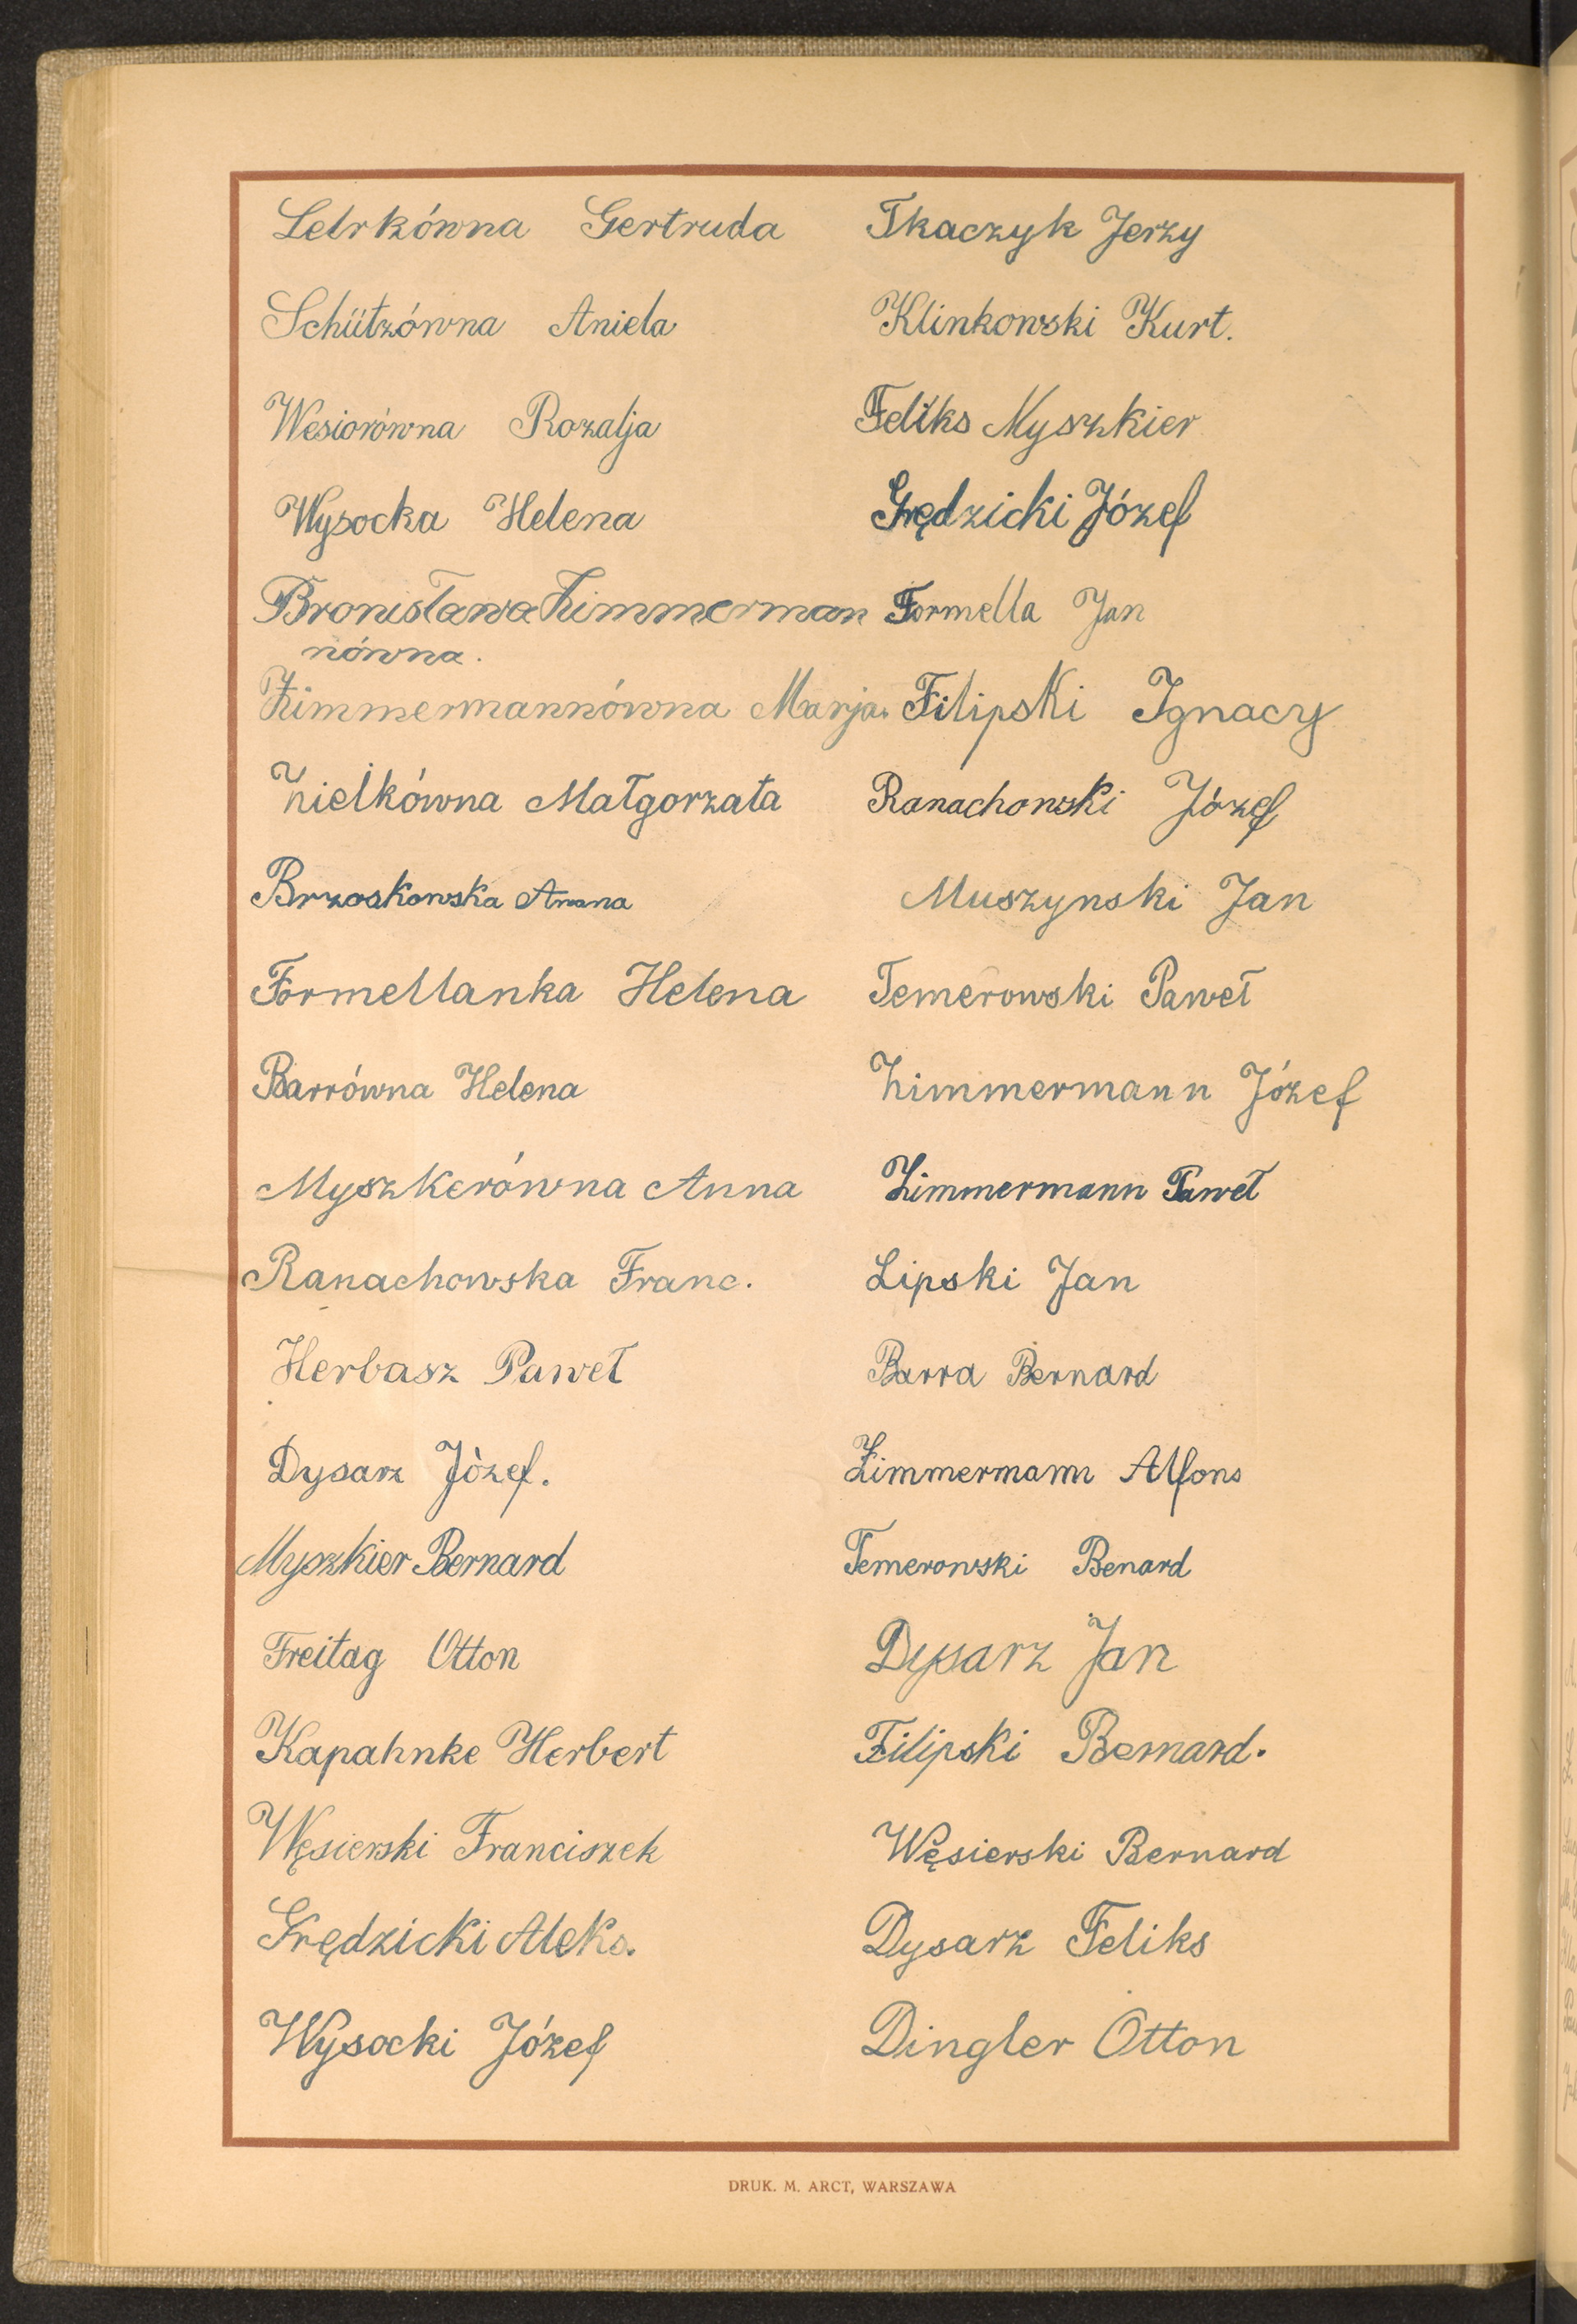 Lehrkówna Gertruda
Schützówna Aniela
Wesiorówna Rozalja
Wysocka Helena
Bronisława Zimmerman
nówna.
Zimmermannówna Marja.
Zielkówna Małgorzata
Brzoskowska Anna
Formellanka Helena
Barrówna Helena
Myszkerówna Anna
Ranachowska Franc.
Herbasz Paweł
Dysarz Józef.
Myszkier Bernard
Freitag Otton
Kapahnke Herbert
Węsierski Franciszek
Grędzicki Aleks.
Wysocki Józef
Tkaczyk Jerzy
Klinkowski Kurt.
Feliks Myszkier
Grędzicki Józef
Formella Jan
Filipski Ignacy
Ranachowski Józef
Muszynski Jan
Temerowski Paweł
Zimmermann Józef
Zimmermann Paweł
Lipski Jan
Barra Bernard
Zimmermann Alfons
Temerowski Benard
Dysarz Jan
Filipski Bernard.
Węsierski Bernard
Dysarz Feliks
Dingler Otton
DRUK. M. ARCT, WARSZAWA